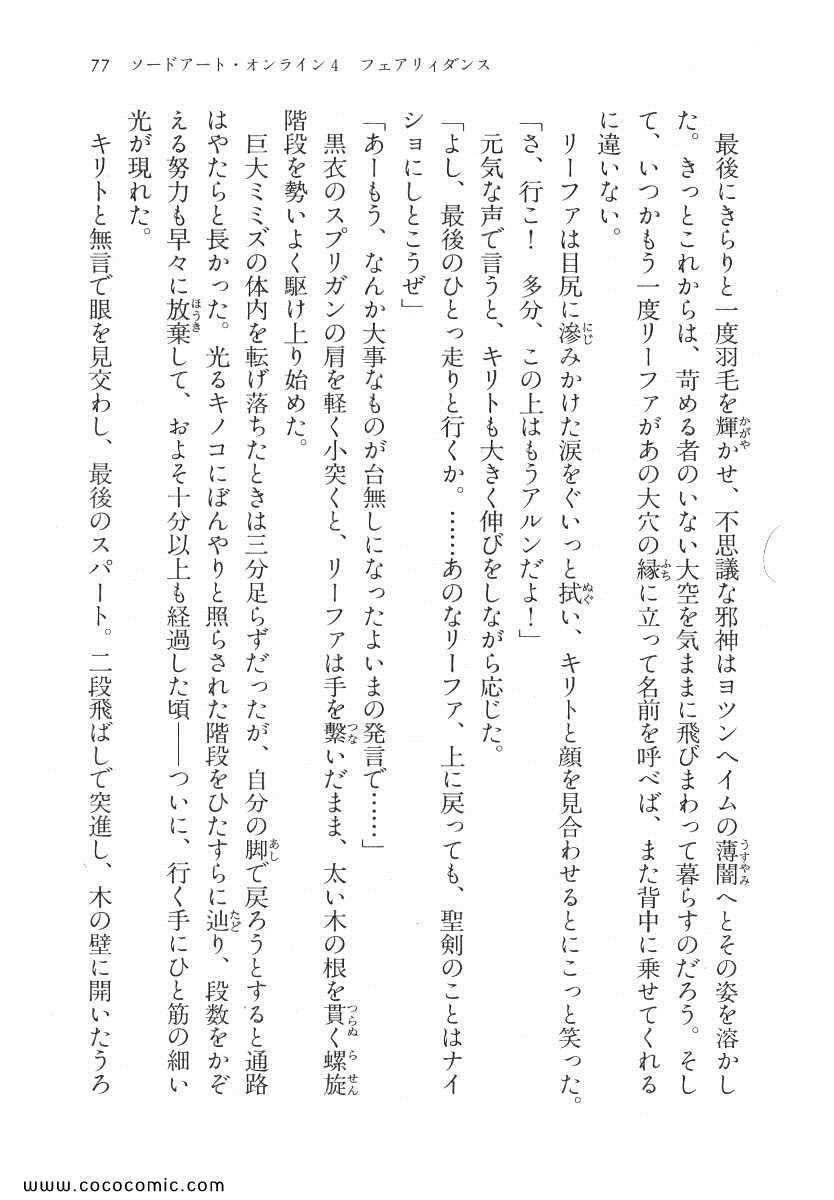 77　ソードアート・オンライン4　フェアリィダンス
　最後にきらりと一度羽毛を輝かせ、不思議な邪神はヨツンヘイムの薄闇へとその姿を溶かし
た。きっとこれからは、苛める者のいない大空を気ままに飛びまわって暮らすのだろう。そし
て、いつかもう一度リーファがあの大穴の縁に立って名前を呼べば、また背中に乗せてくれる
に違いない。
　リーファは目尻に滲みかけた涙をぐいっと拭い、キリトと顔を見合わせるとにこっと笑った。
「さ、行こ！　多分、この上はもうアルンだよ！」
　元気な声で言うと、キリトも大きく伸びをしながら応じた。
「よし、最後のひとっ走りと行くか。……あのなリーファ、上に戻っても、聖剣のことはナイ
ショにしとこうぜ」
「あーもう、なんか大事なものが台無しになったよいまの発言で……」
　黒衣のスプリガンの肩を軽く小突くと、リーファは手を繋いだまま、太い木の根を貫く螺旋
階段を勢いよく駆け上り始めた。
　巨大ミミズの体内を転げ落ちたときは三分足らずだったが、自分の脚で戻ろうとすると通路
はやたらと長かった。光るキノコにぼんやりと照らされた階段をひたすらに辿り、段数をかぞ
える努力も早々に放棄して、およそ十分以上も経過した頃——ついに、行く手にひと筋の細い
光が現れた。
　キリトと無言で眼を見交わし、最後のスパート。二段飛ばしで突進し、木の壁に開いたうろ
www.cococomic.com